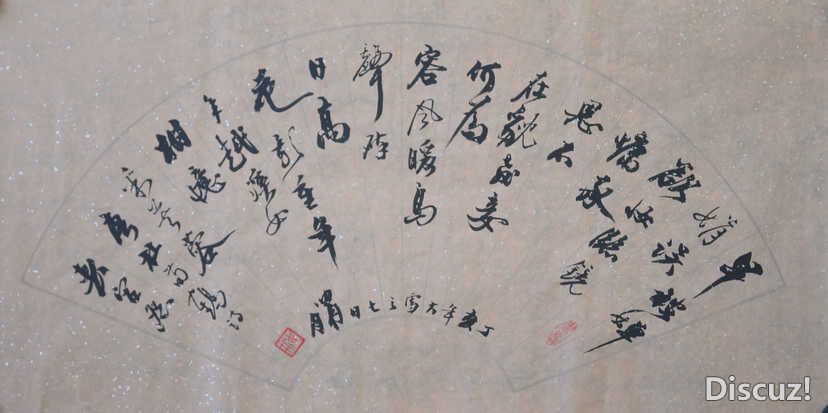 早被婵
娟误
欲妆临镜
慵承
恩不
在貌教妾
何为
容风暖鸟
声碎
日高
花影重年
年越溪女
相忆采
芙蓉
唐杜荀鹤诗
春宫怨
丁亥年大雪之七日
Discuz!